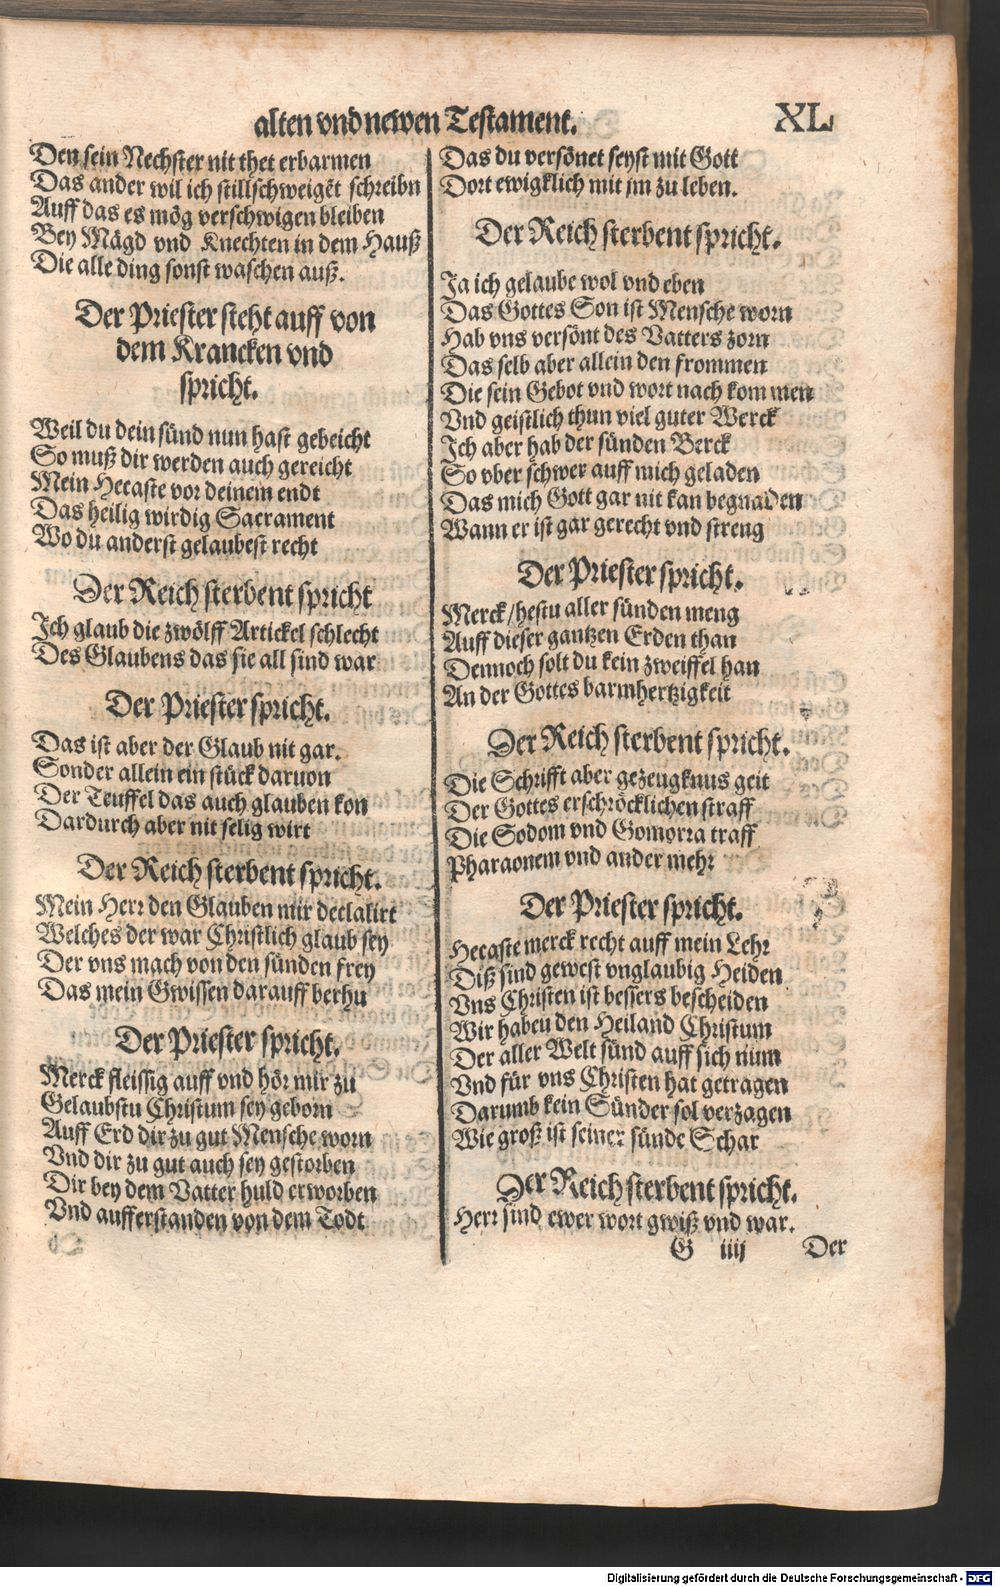 alten vnd newen Testament.
XL
Den sein Nechster nit thet erbarmen
Das ander wil ich stillschweigēt schreibn
Auff das es mög verschwigen bleiben
Bey Mägd vnd Knechten in dem Hauß
Die alle ding sonst waschen auß.
Der Priester steht auff von
dem Krancken vnd
spricht.
Weil du dein sünd nun hast gebeicht
So muß dir werden auch gereicht
Mein Hecaste vor deinem endt
Das heilig wirdig Sacrament
Wo du anderst gelaubest recht
Der Reich sterbent spricht
Ich glaub die zwölff Artickel schlecht
Des Glaubens das sie all sind war
Der Priester spricht.
Das ist aber der Glaub nit gar.
Sonder allein ein stück daruon
Der Teuffel das auch glauben kon
Dardurch aber nit selig wirt
Der Reich sterbent spricht.
Mein Herr den Glauben mir declalirt
Welches der war Christlich glaub sey
Der vns mach von den sünden frey
Das mein Gwissen darauff berhu
Der Priester spricht.
Merck fleissig auff vnd hör mir zu
Gelaubstu Christum sey geborn
Auff Erd dir zu gut Mensche worn
Vnd dir zu gut auch sey gestorben
Dir bey dem Vatter huld erworben
Vnd aufferstanden von dem Todt
Das du versönet seyst mit Gott
Dort ewigklich mit jm zu leben.
Der Reich sterbent spricht.
Ja ich gelaube wol vnd eben
Das Gottes Son ist Mensche worn
Hab vns versönt des Vatters zorn
Das selb aber allein den frommen
Die sein Gebot vnd wort nach kommen
Vnd geistlich thun viel guter Werck
Ich aber hab der sünden Berck
So vber schwer auff mich geladen
Das mich Gott gar nit kan begnaden
Wann er ist gar gerecht vnd streng
Der Priester spricht.
Merck / hestu aller sünden meng
Auff dieser gantzen Erden than
Dennoch solt du kein zweiffel han
An der Gottes barmhertzigkeit
Der Reich sterbent spricht.
Die Schrifft aber gezeugknus geit
Der Gottes erschröcklichen straff
Die Sodom vnd Gomorra traff
Pharaonem vnd ander mehr
Der Priester spricht.
Hecaste merck recht auff mein Lehr
Diß sind gewest vnglaubig Heiden
Vns Christen ist bessers bescheiden
Wir haben den Heiland Christum
Der aller Welt sünd auff sich num
Vnd für vns Christen hat getragen
Darumb kein Sünder sol verzagen
Wie groß ist seiner sünde Schar
Der Reich sterbent spricht.
Herr sind ewer wort gwiß vnd war.
G iiij Der
Digitalisierung gefördert durch die Deutsche Forschungsgemeinschaft - DFG